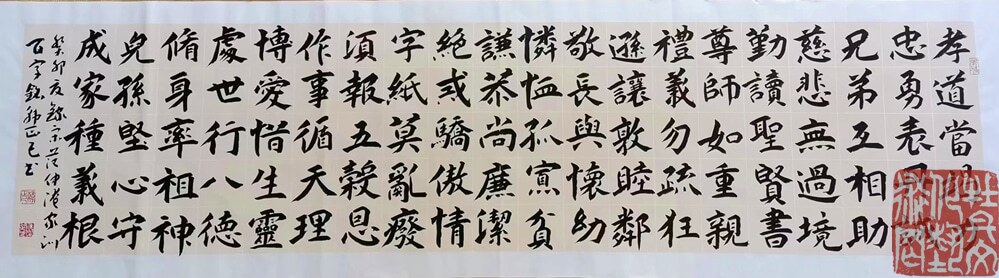 孝道當
忠勇表
兄弟互相助
慈悲無過境
勤讀聖賢書
尊師如重親
禮義勿疏狂
遜讓敦睦鄰
敬長與懷幼
憐恤孤寡貧
謙恭尚廉潔
絕戒驕傲情
字紙莫亂廢
須報五穀恩
作事循天理
博愛惜生靈
處世行八德
脩身率祖神
兒孫堅心守
成家種義根
癸卯夏錄宋范仲淹家訓
百字銘 正己書